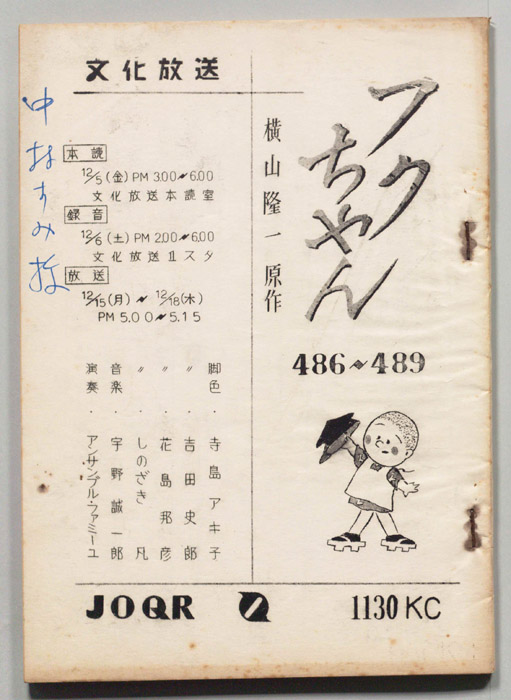 文化放送
フクちゃん
横山隆一 原作
486〜489
本読
12/5(金) PM 3.00〜6.00
文化放送本読室
録音
12/6(土) PM 2.00〜6.00
文化放送 1スタ
放送
12/15(月) 〜 12/18(木)
PM 5.00〜5.15
脚色・寺島アキ子
〃 吉田史郎
〃 花島邦彦
〃 しのざき凡
音楽・宇野誠一郎
演奏・アンサンブル・ファミーユ
JOQR
1130 KC